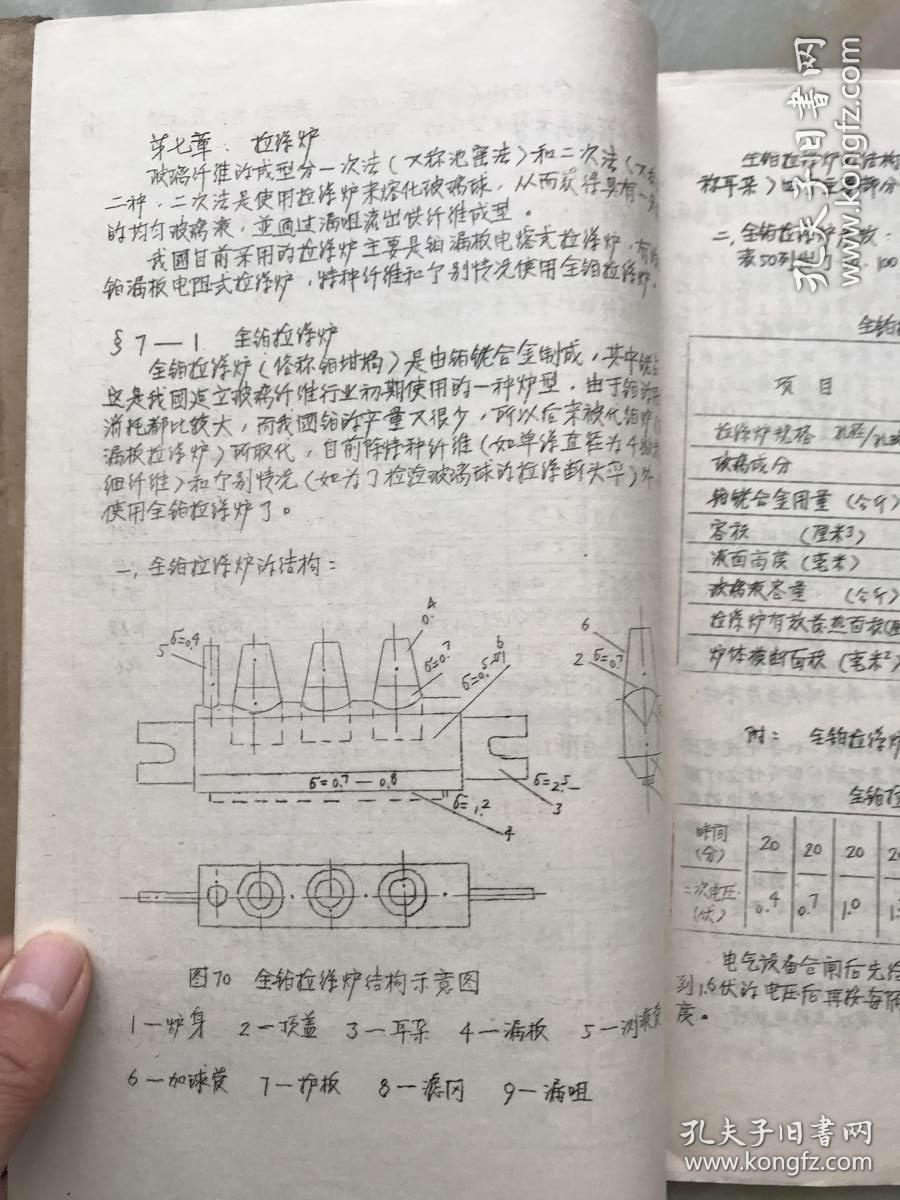 第七章：拉绦炉
玻璃纤维的成型分一次法（又称池窑法）和二次法（又称
二种，二次法是使用拉绦炉来熔化玻璃球，从而获得具有一
的均匀玻璃液，並通过漏咀流出供纤维成型。
我國目前采用的拉绦炉主要是铂漏板电熔式拉绦炉，有
铂漏板电阻式拉绦炉，特种纤维和个别情况使用全铂拉绦炉，
§7—1 全铂拉绦炉
全铂拉绦炉（俗称铂坩埚）是由铂铑合金制成，其中铑
这是我國建立玻璃纤维行业初期使用的一种炉型，由于铂的用
消耗都比较大，而我國铂的产量又很少，所以后来被代铂炉（
漏板拉绦炉）所取代，目前除特种纤维（如单绦直径为4
细纤维）和个别情况（如为了检验玻璃球的拉绦断头率）外
使用全铂拉绦炉了。
一，全铂拉绦炉的结构：
5
δ=0.4
δ=0.7
6
δ=0.7—0.8
δ=1.2
δ=2.5
3
4
6
2
δ=0.7
图70 全铂拉绦炉结构示意图
1—炉身 2—顶盖 3—耳朵 4—漏板 5—测液
6—加球筒 7—护板 8—滤冈 9—漏咀
全铂拉绦炉的结构
称耳朵）
部分
二，全铂拉绦炉
数：
表50列出了
100
全铂
项目
拉绦炉规格 孔径/孔
玻璃成分
铂铑合金用量（公斤）
容积（厘米³）
液面高度（毫米）
玻璃液容量（公斤）
拉绦炉有效传热面积
炉体横断面积（毫米²）
附：全铂拉绦炉
全铂拉
时间（分） 20 20 20
二次电压（伏） 0.4 0.7 1.0
电气设备合闸后先给
到1.6伏的电压后再按每隔
度。
孔夫子旧书网
孔夫子旧书网
www.kongfz.com